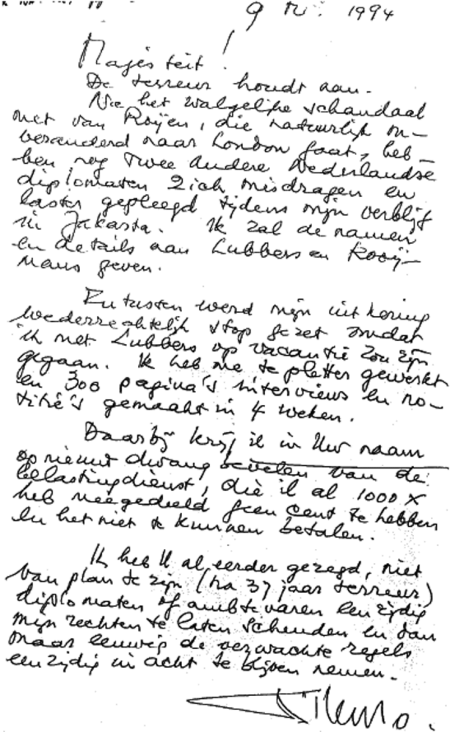 9 IV. 1994
Majesteit!
De terreur houdt aan.
Na het walgelijke schandaal
met van Roijen, die natuurlijk on-
veranderd naar London gaat, heb-
ben nog twee andere Nederlandse
diplomaten zich misdragen en
laster gepleegd tijdens mijn verblijf
in Jakarta. Ik zal de namen
en details aan Lubbers en Kooij-
mans geven.
Intussen werd mijn uitkering
wederrechtelijk stop gezet omdat
ik met Lubbers op vacantie zou zijn
gegaan. Ik heb me te pletter gewerkt
en 300 pagina's interviews en no-
titie's gemaakt in 4 weken.
Daarbij krijg ik in Uw naam
opnieuw dwangbevelen van de
belastingdienst, die ik al 1000 x
heb meegedeeld geen cent te hebben
en het niet te kunnen betalen.
Ik heb U al eerder gezegd, niet
van plan te zijn (na 37 jaar terreur)
diplomaten of ambtenaren eenzijdig
mijn rechten te laten schenden en dan
maar eeuwig de verwachte regels
eenzijdig in acht te blijven nemen.